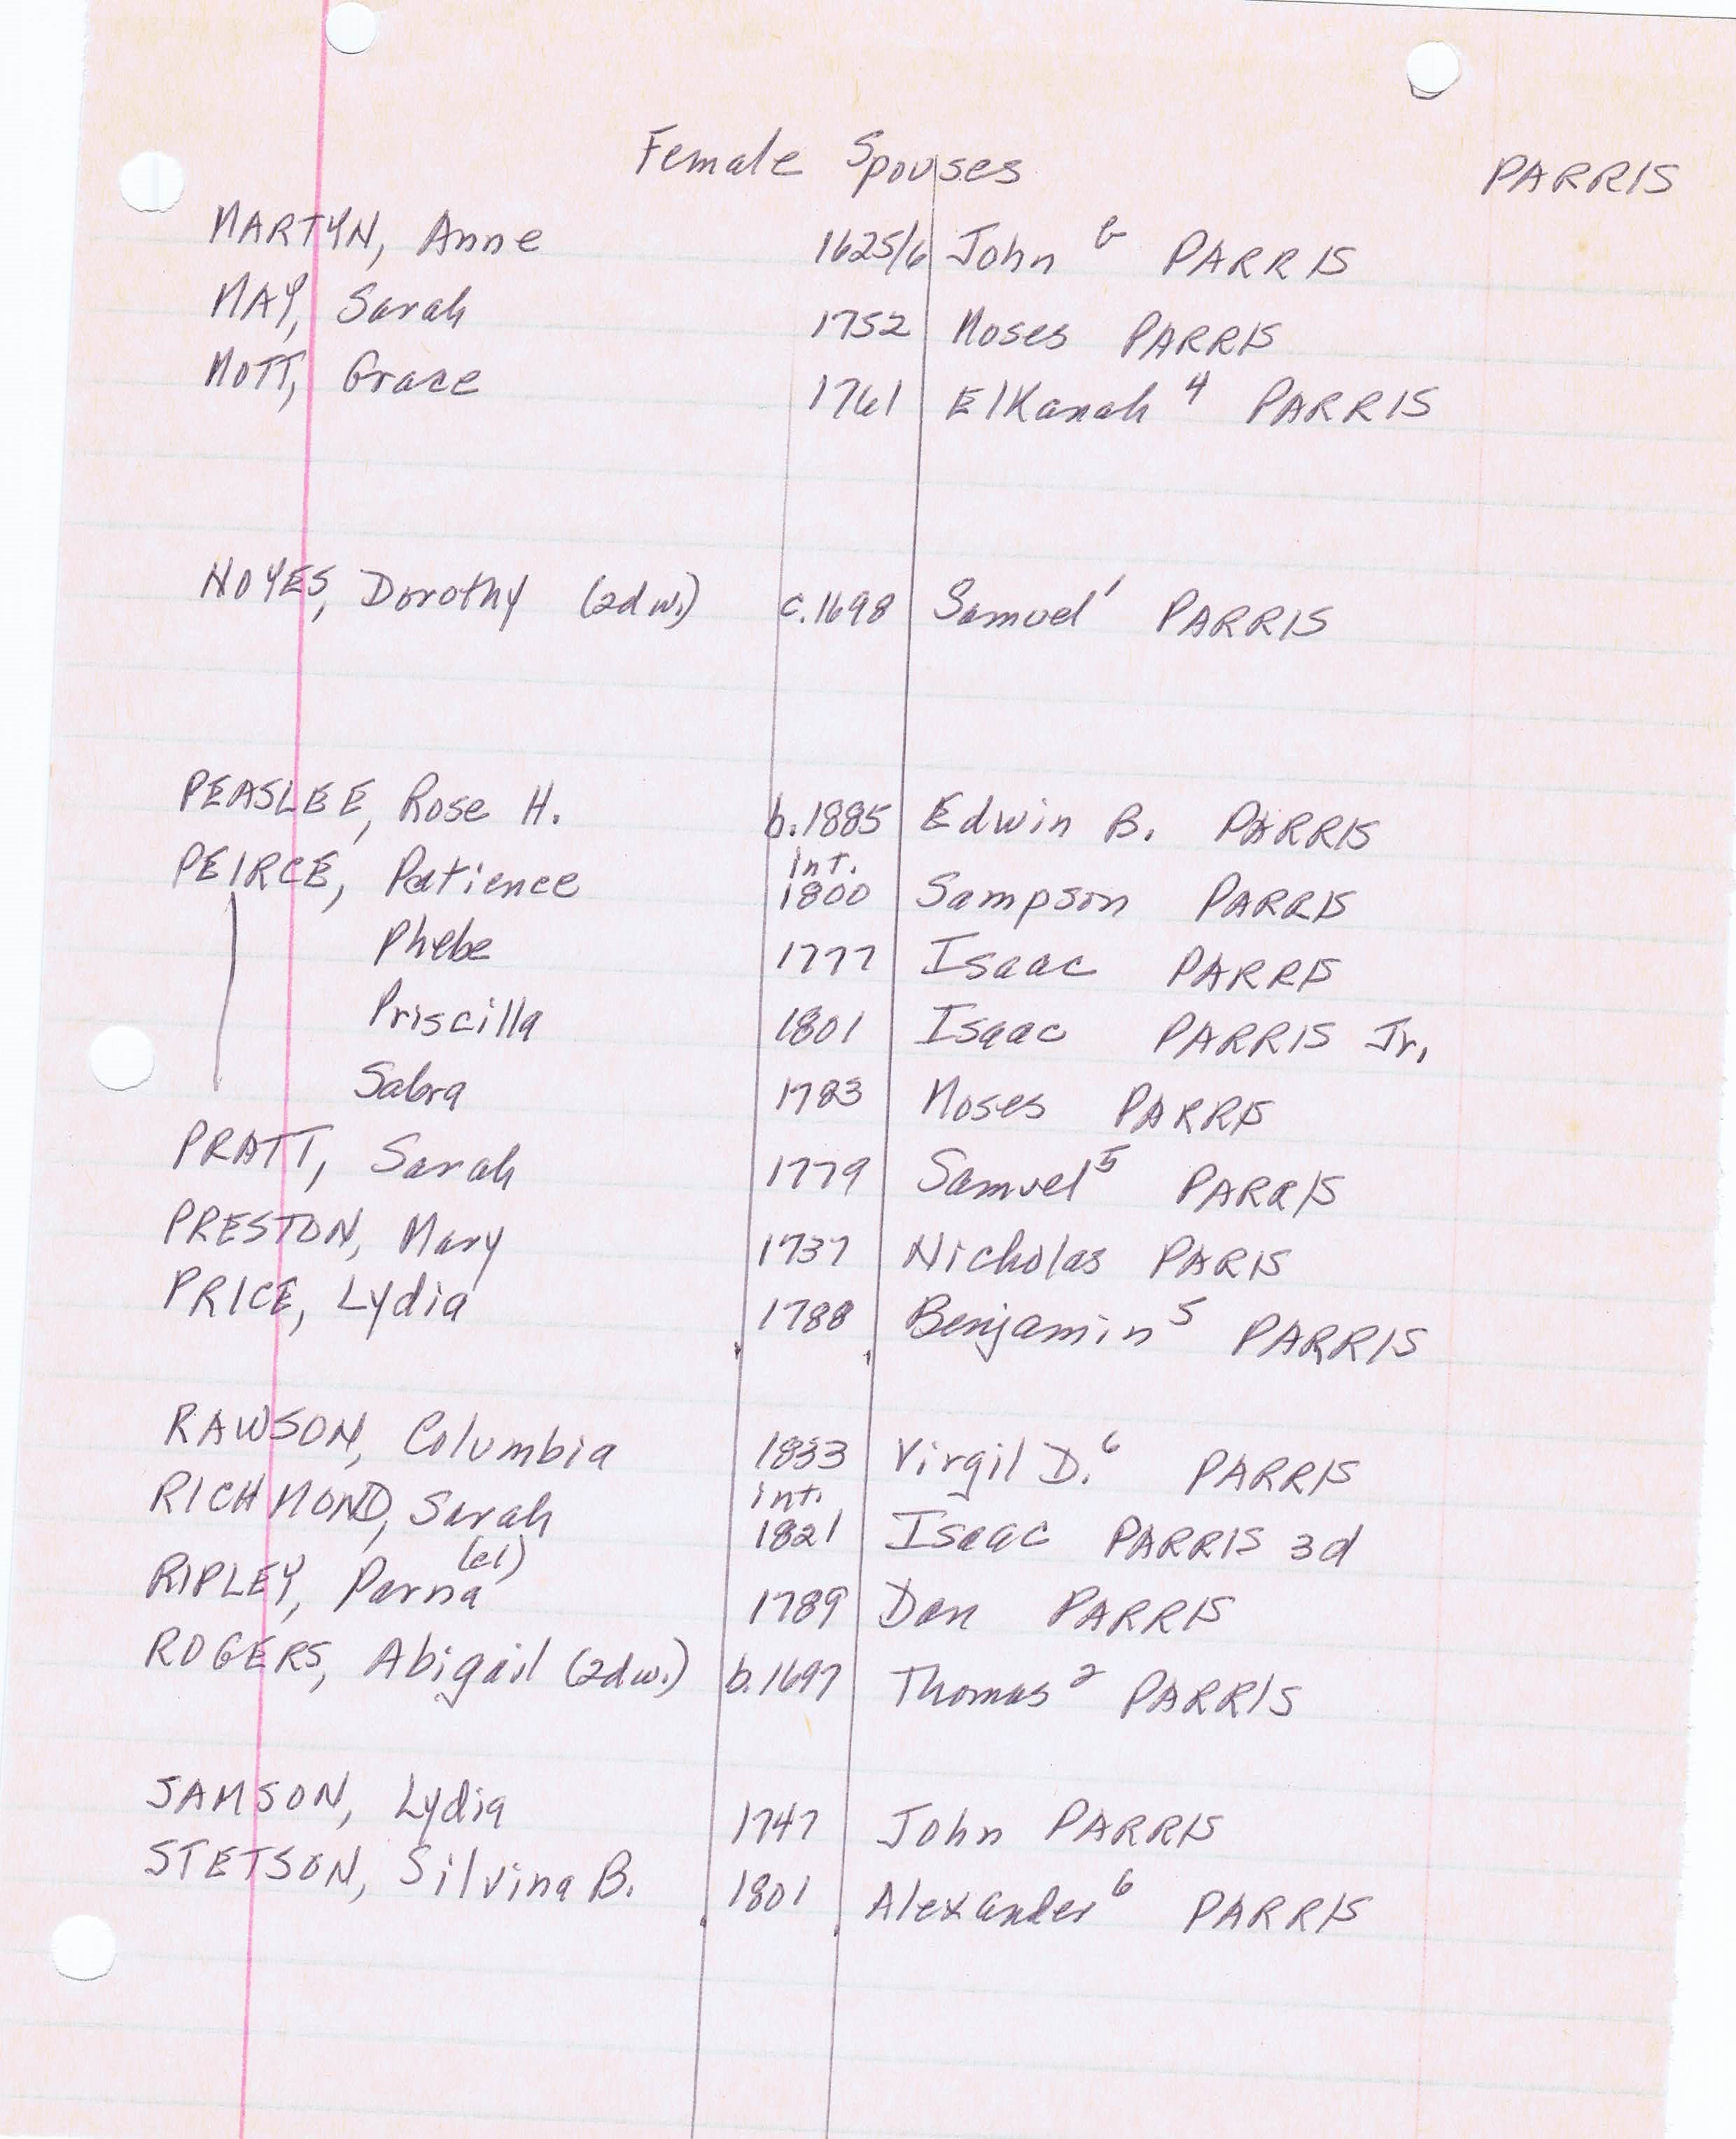 Female Spouses PARRIS
MARTYN, Anne 1625/6 John b PARRIS
MAY, Sarah 1752 Moses PARRIS
MOTT, Grace 1761 ElKanah 4 PARRIS
NOYES, Dorothy (2d w.) c.1698 Samuel 1 PARRIS
PEASLEE, Rose H. b.1885 Edwin B. PARRIS
PEIRCE, Patience int. 1800 Sampson PARRIS
Phebe 1777 Isaac PARRIS
Priscilla 1801 Isaac PARRIS Jr.
Sabra 1783 Moses PARRIS
PRATT, Sarah 1779 Samuel 5 PARRIS
PRESTON, Mary 1737 Nicholas PARIS
PRICE, Lydia 1788 Benjamin 5 PARRIS
RAWSON, Columbia 1833 Virgil D. 6 PARRIS
RICHMOND, Sarah int. 1821 Isaac PARRIS 3d
RIPLEY, Perna 1789 Dan PARRIS
ROGERS, Abigail (2d w.) b.1697 Thomas 2 PARRIS
SAMSON, Lydia 1747 John PARRIS
STETSON, Silvina B. 1801 Alexander 6 PARRIS